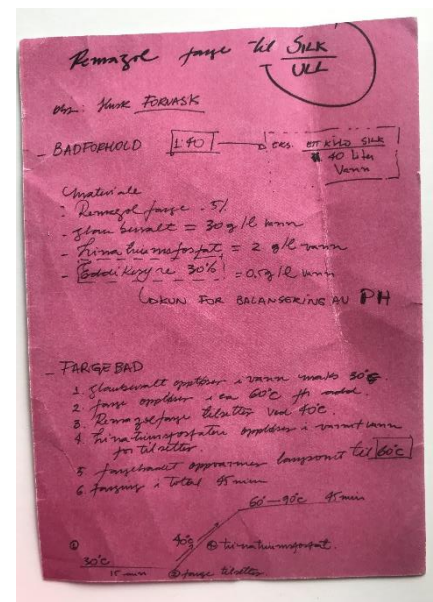 Remazol farge til SILK
ULL
obs: Husk FORVASK
- BADFORHOLD 1:40 → eks. ETT KILO SILK
40 Liter
Vann
Materiale
- Remazol farge . 5%
- glaubersalt = 30g/l vann
- Trinatriumsfosfat = 2 g/l vann
- Eddiksyre 30% = 0.5g/l vann
KUN FOR BALANSERING AV PH
- FARGEBAD
1. glaubersalt oppløser i vann maks 30°C.
2. farge oppløser i ca 60°C
3. Remazolfarge tilsetter ved 40°C.
4. Trinatriumsfosfater oppløser i varmt vann
før tilsetter.
5 fargebadet oppvarmer langsomt til 60°C
6. farging i total 45 min
60-90°C 45 min
40°C ④ trinatriumsfosfat.
①
30°C
15 min farge tilsetter